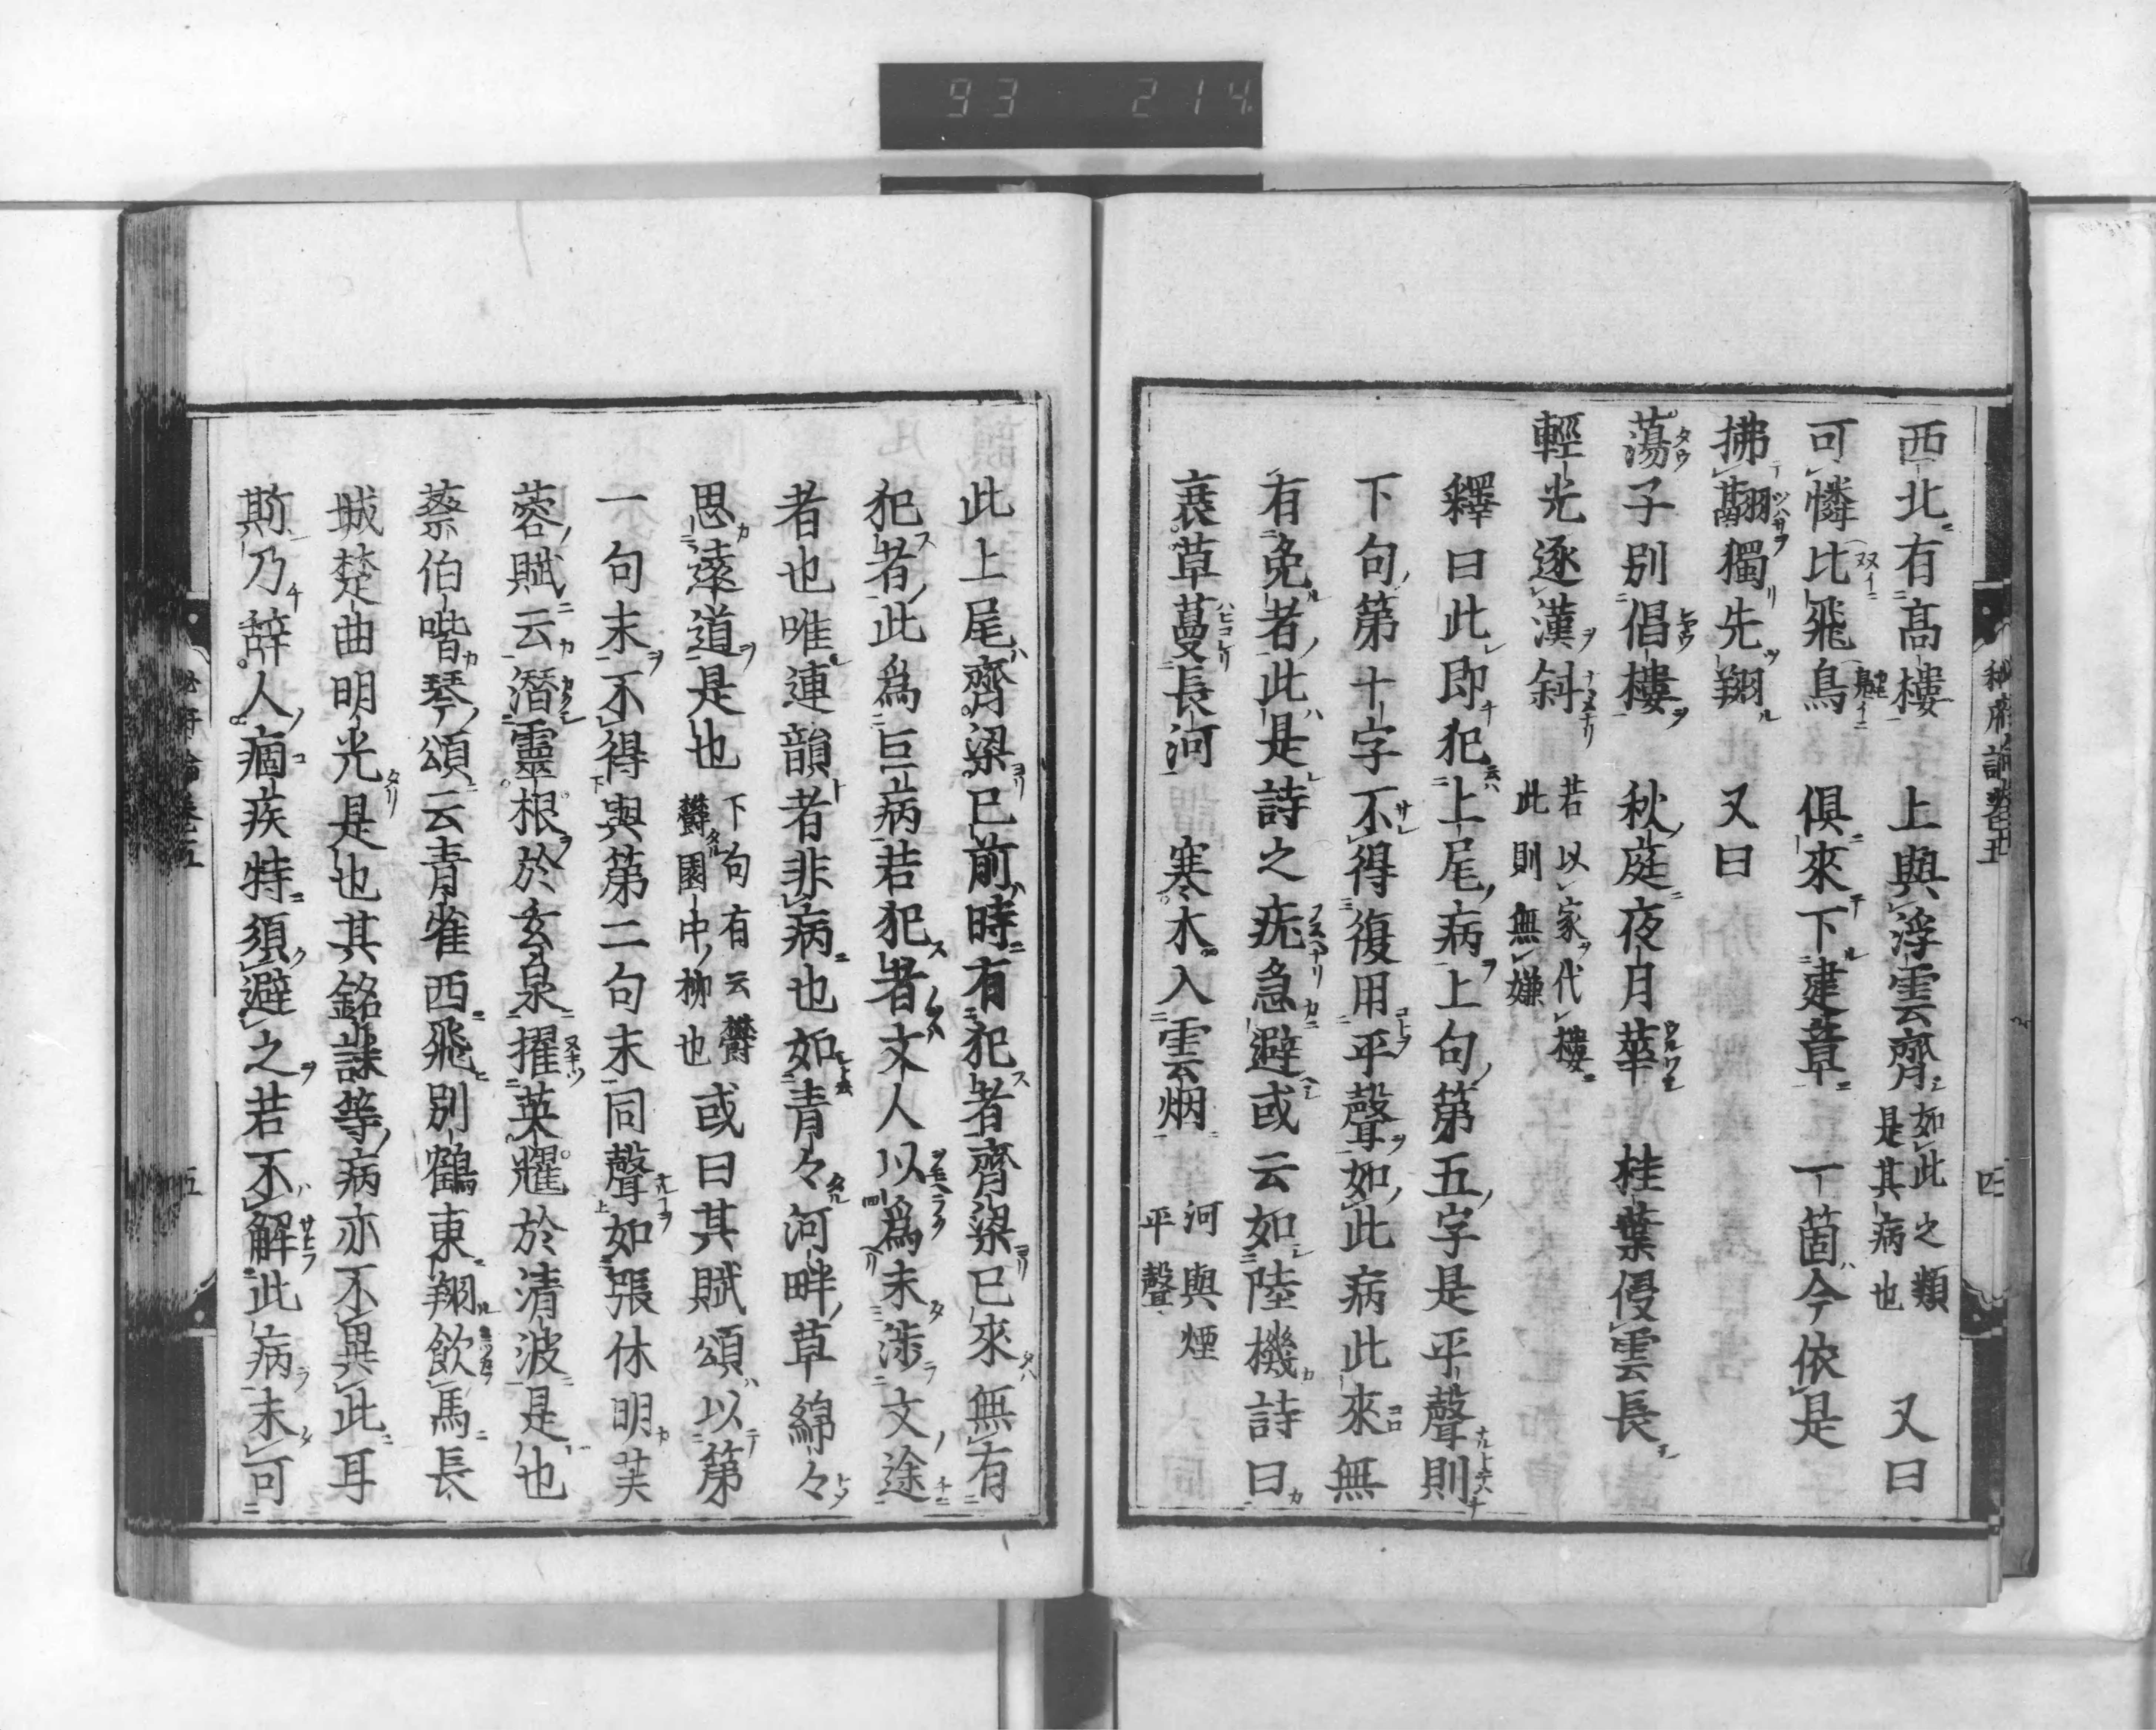 93 214
西北有高樓 上與浮雲齊 如此之類 是其病也 又曰
可憐比飛鳥 俱來下建章 一箇今依是
拂翮獨先翔 又曰
蕩子別倡樓 秋庭夜月華 桂葉侵雲長
輕光逐漢斜 若以家代樓 此則無嫌
釋曰此即犯上尾病上句第五字是平聲則
下句第十字不得復用平聲如此病此來無
有免者此是詩之疣急避或云如陸機詩曰
衰草蔓長河 寒木入雲烟 河與煙 平聲
秘府論卷五 四
此上尾齊梁已前時有犯者齊梁已來無有
犯者此爲巨病若犯者文人以爲未涉文途
者也唯連韻者非病也如青々河畔草綿々
思遠道是也 下句有云鬱 鬱園中柳也 或曰其賦頌以第
一句末不得與第二句末同聲如張休明芙
蓉賦云潛靈根於玄泉擢英耀於清波是也
蔡伯喈琴頌云青雀西飛別鶴東翔飲馬長
城楚曲明光是也其銘誄等病亦不異此耳
斯乃辭人痼疾特須避之若不解此病未可
五